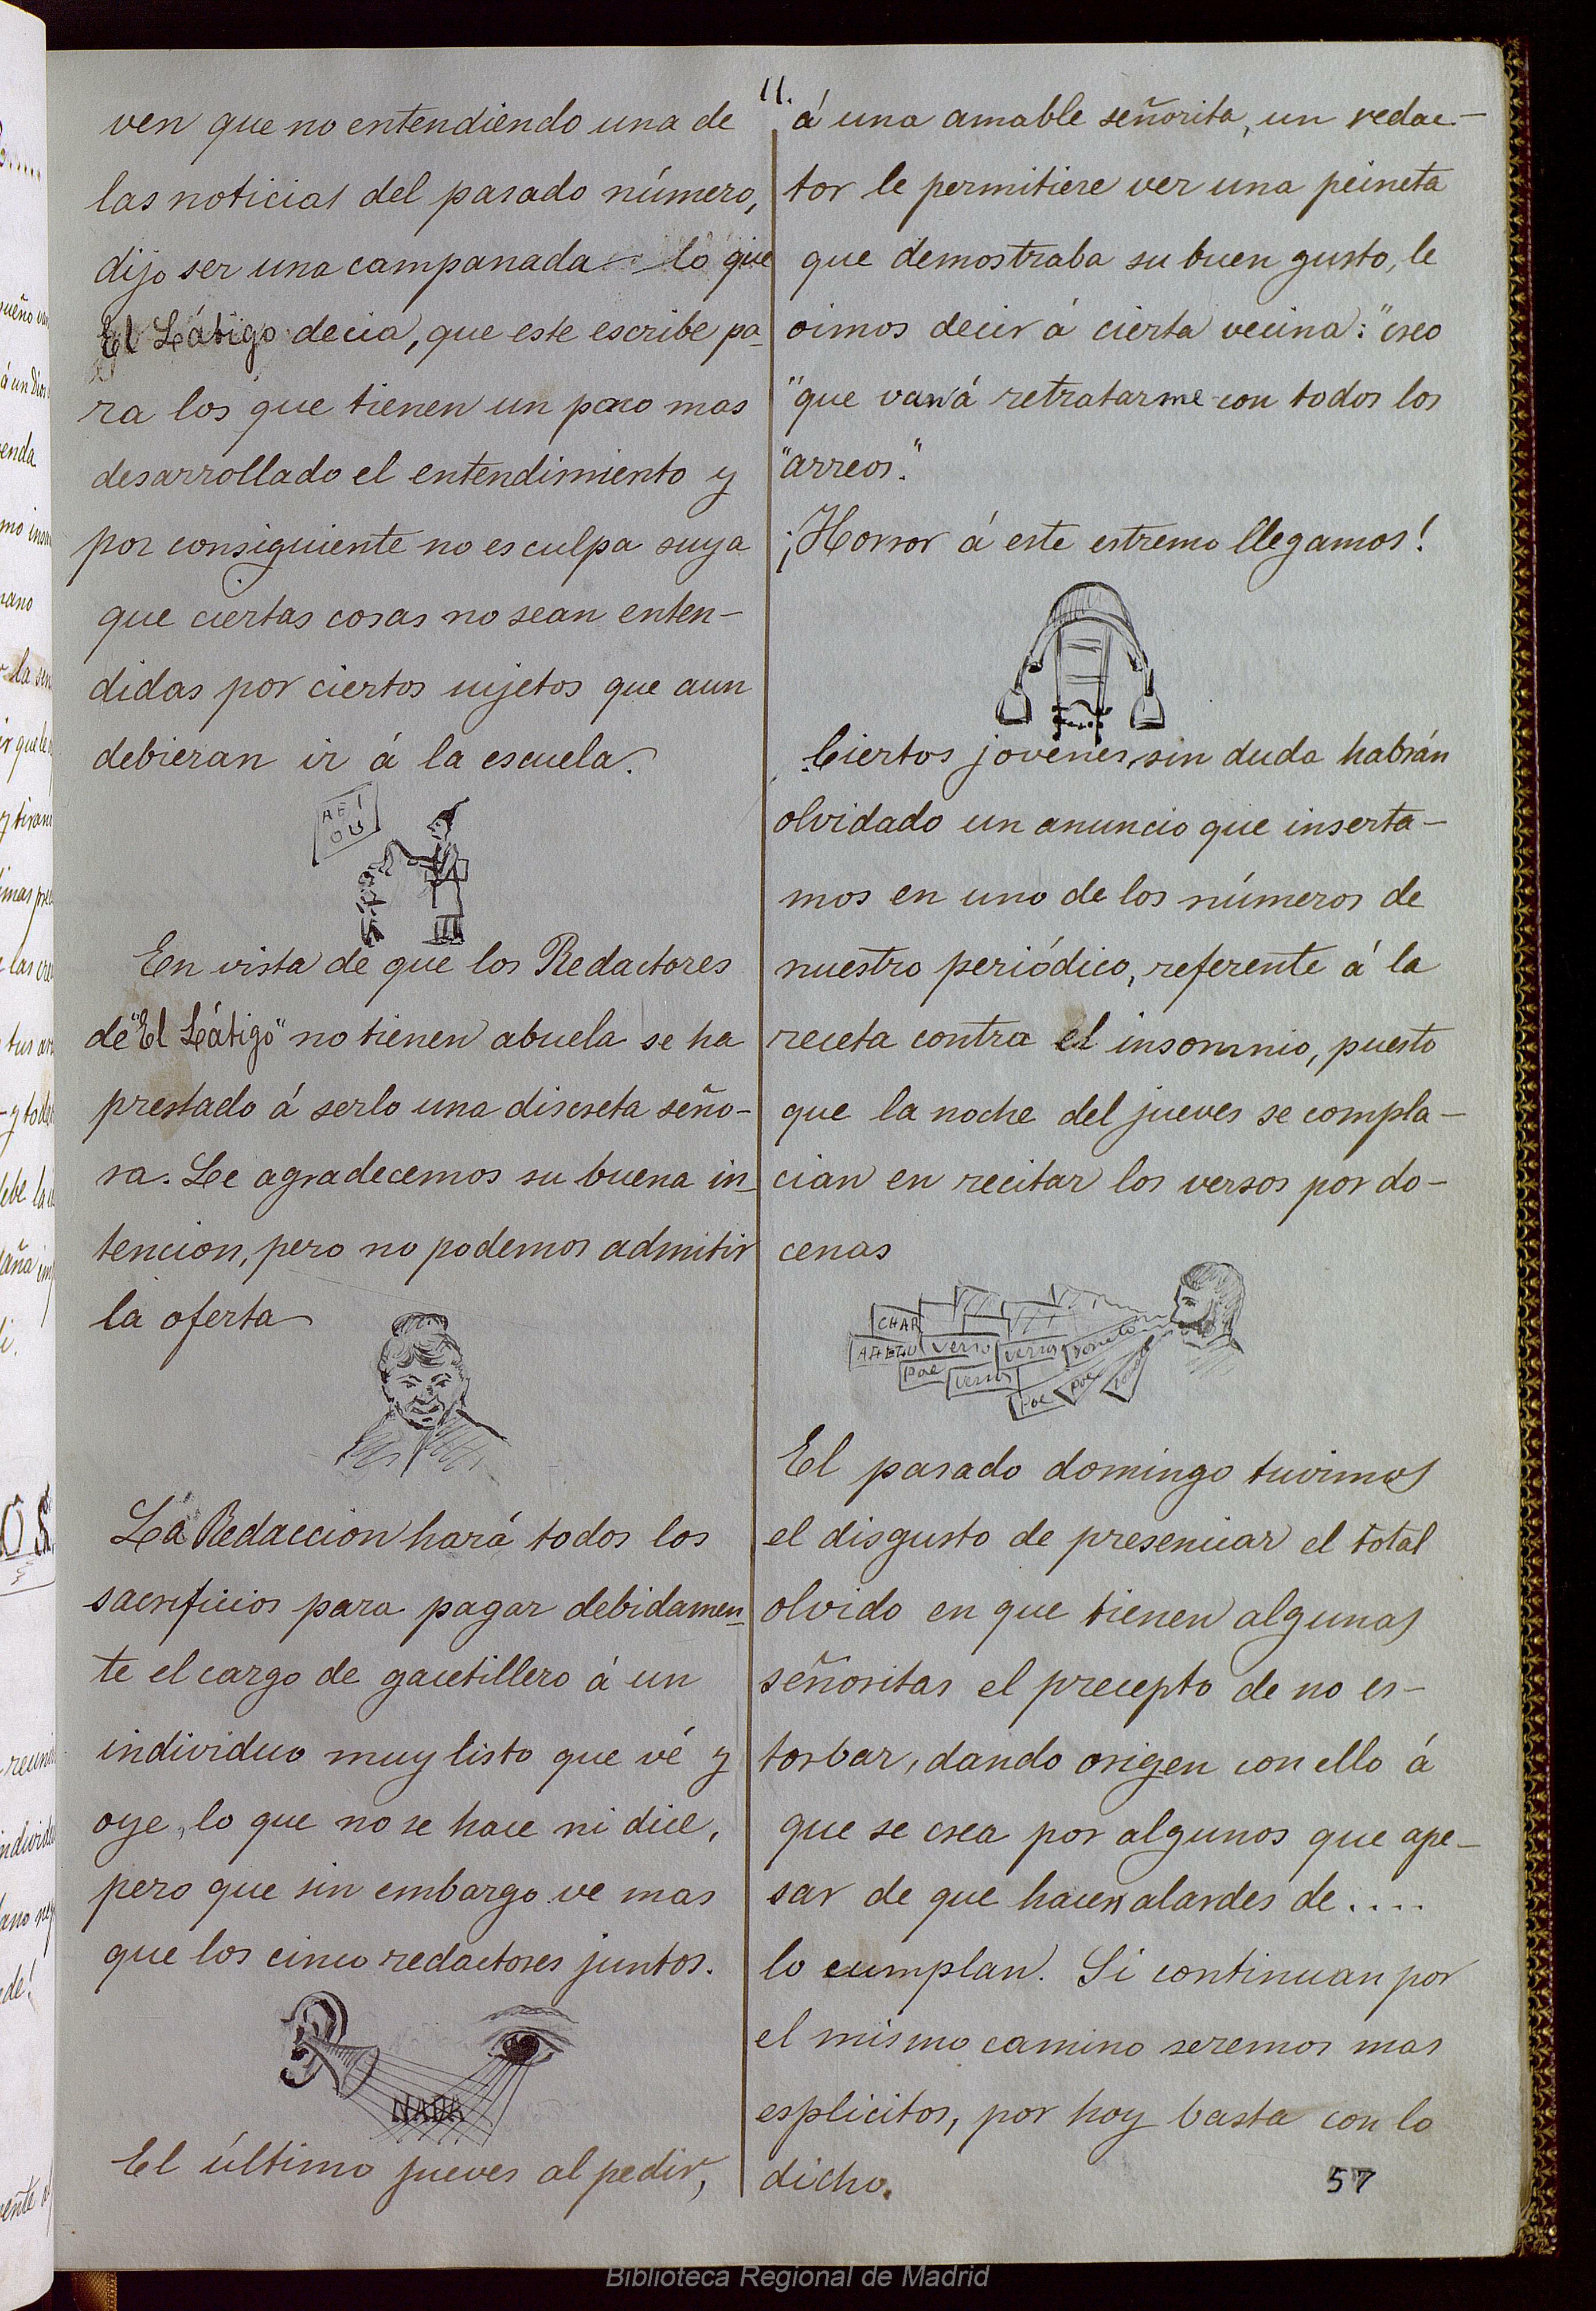 11.
ven que no entendiendo una de
las noticias del pasado número,
dijo ser una campanada lo que
El Látigo decia, que este escribe pa-
ra los que tienen un poco mas
desarrollado el entendimiento y
por consiguiente no es culpa suya
que ciertas cosas no sean enten-
didas por ciertos sujetos que aun
debieran ir á la escuela.
A E I
O U
En vista de que los Redactores
de "El Látigo" no tienen abuela se ha
prestado á serlo una discreta seño-
ra. Le agradecemos su buena in-
tencion, pero no podemos admitir
la oferta
La Redaccion hará todos los
sacrificios para pagar debidamen-
te el cargo de gacetillero á un
individuo muy listo que vé y
oye, lo que no se hace ni dice,
pero que sin embargo ve mas
que los cinco redactores juntos.
NADA
El último jueves al pedir,
á una amable señorita, un redac-
tor le permitiere ver una peineta
que demostraba su buen gusto, le
oimos decir á cierta vecina: "creo
"que van á retratarme con todos los
"arreos."
¡Horror á este estremo llegamos!
Ciertos jovenes, sin duda habrán
olvidado un anuncio que inserta-
mos en uno de los números de
nuestro periódico, referente á la
receta contra el insomnio, puesto
que la noche del jueves se compla-
cian en recitar los versos por do-
cenas
CHAR
verso versos soneto
Poe versos
Poe Poe
El pasado domingo tuvimos
el disgusto de presenciar el total
olvido en que tienen algunas
señoritas el precepto de no es-
torbar, dando origen con ello á
que se crea por algunos que ape-
sar de que hacen alardes de ....
lo cumplan. Si continuan por
el mismo camino seremos mas
esplicitos, por hoy basta con lo
dicho.
57
Biblioteca Regional de Madrid